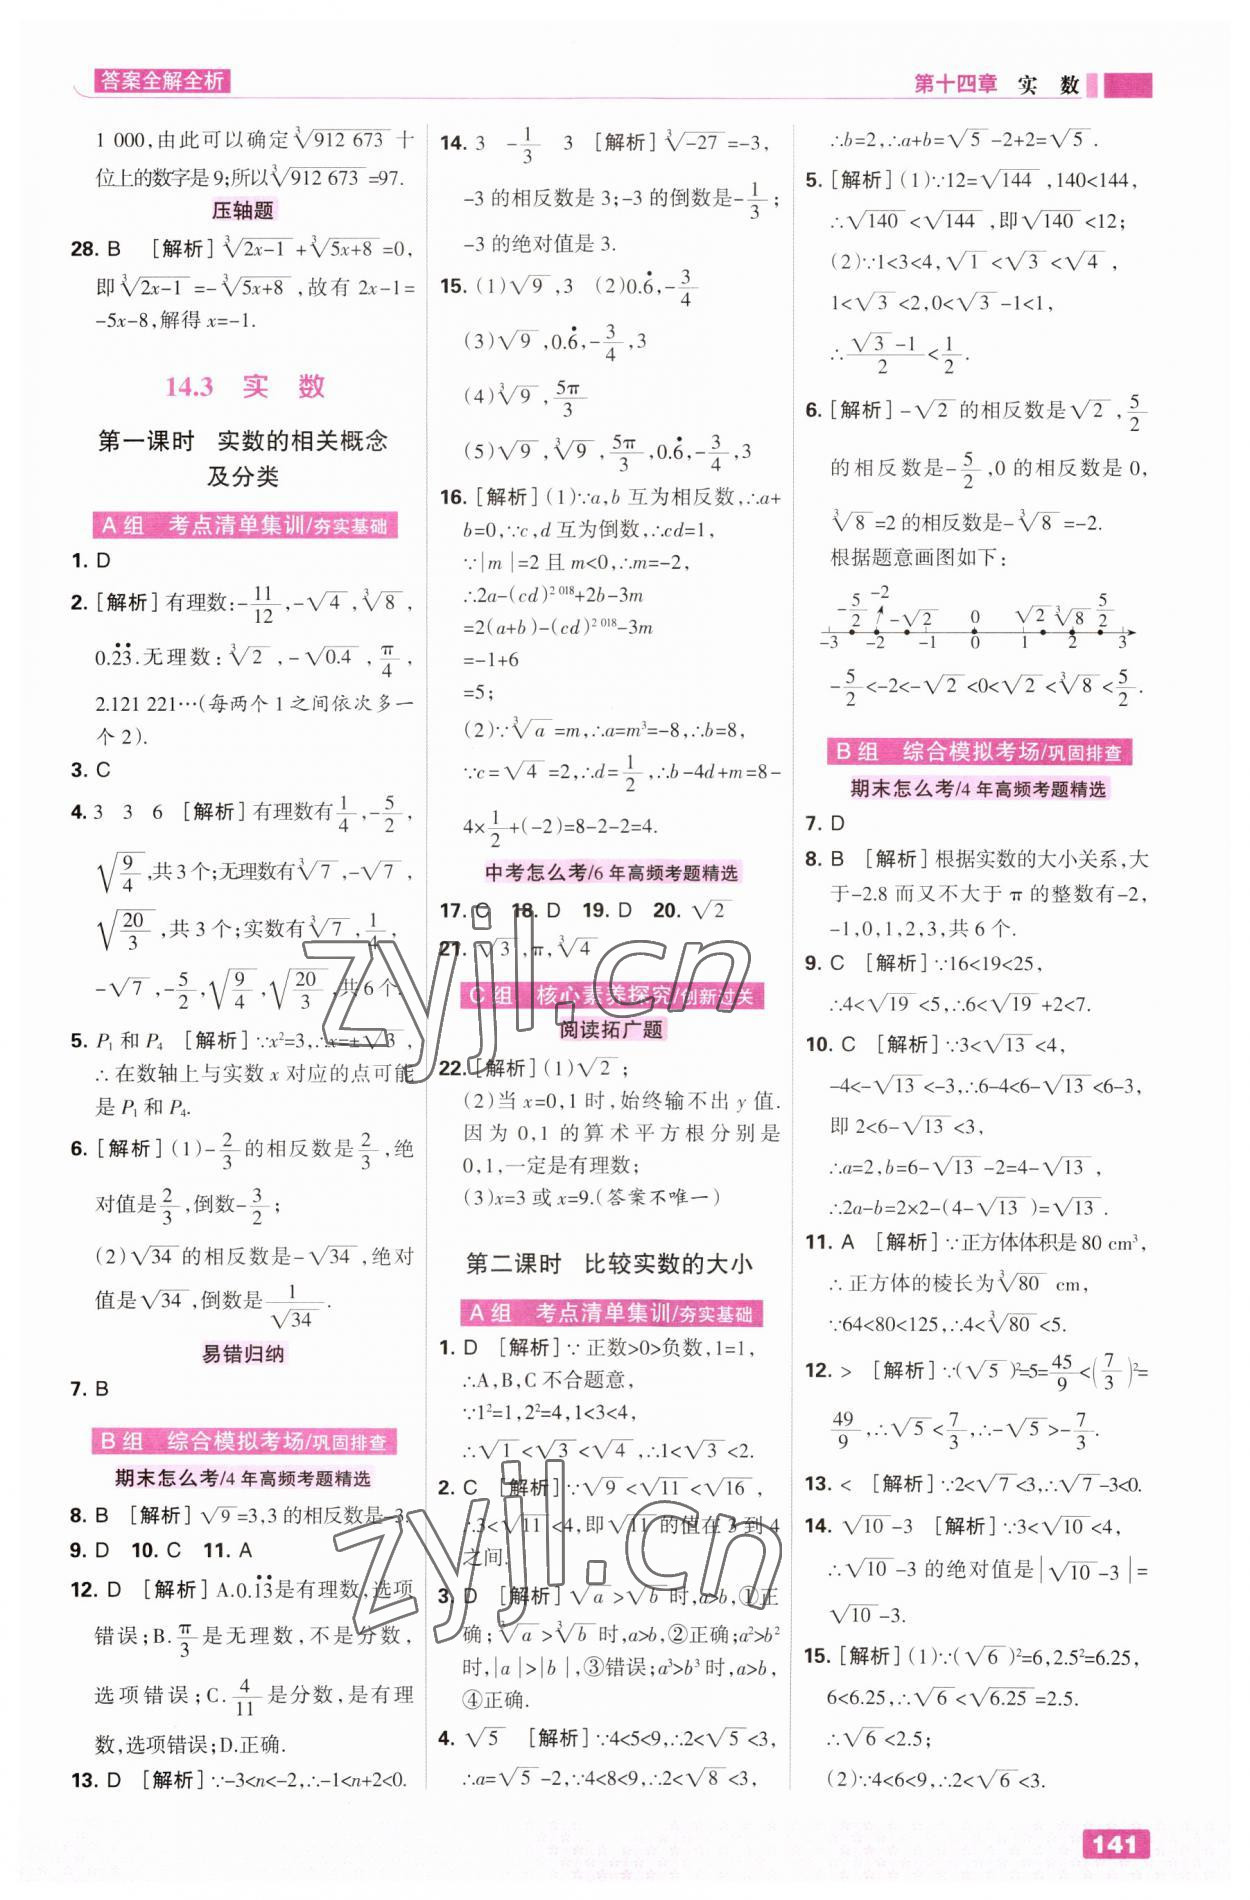 答案全解全析
第十四章 实 数
1 000,由此可以确定∛912 673 十
位上的数字是9;所以∛912 673=97.
压轴题
28. B [解析]∛2x-1+∛5x+8=0,
即∛2x-1=-∛5x+8,故有 2x-1=
-5x-8,解得 x=-1.
14.3 实 数
第一课时 实数的相关概念
及分类
A 组 考点清单集训/夯实基础
1. D
2. [解析]有理数:-11/12,-√4,∛8,
0.2̇3̇.无理数:∛2,-√0.4,π/4,
2.121 221…(每两个 1 之间依次多一
个 2).
3. C
4. 3 3 6 [解析]有理数有1/4,-5/2,
√(9/4),共3个;无理数有∛7,-√7,
√(20/3),共3个;实数有∛7,1/4,
-√7,-5/2,√(9/4),√(20/3),共6个.
5. P₁ 和 P₄ [解析]∵x²=3,∴x=±√3,
∴在数轴上与实数 x 对应的点可能
是 P₁ 和 P₄.
6. [解析](1)-2/3的相反数是2/3,绝
对值是2/3,倒数-3/2;
(2)√34的相反数是-√34,绝对
值是√34,倒数是1/√34.
易错归纳
7. B
B 组 综合模拟考场/巩固排查
期末怎么考/4 年高频考题精选
8. B [解析]√9=3,3的相反数是-3.
9. D 10. C 11. A
12. D [解析]A.0.1̇3̇是有理数,选项
错误;B.π/3是无理数,不是分数,
选项错误;C.4/11是分数,是有理
数,选项错误;D.正确.
13. D [解析]∵-3<n<-2,∴-1<n+2<0.
14. 3 -1/3 3 [解析]∛-27=-3,
-3的相反数是3;-3的倒数是-1/3;
-3的绝对值是 3.
15. (1)√9,3 (2)0.6̇,-3/4
(3)√9,0.6̇,-3/4,3
(4)∛9,5π/3
(5)√9,∛9,5π/3,0.6̇,-3/4,3
16. [解析](1)∵a,b 互为相反数,∴a+
b=0,∵c,d 互为倒数,∴cd=1,
∵|m|=2 且 m<0,∴m=-2,
∴2a-(cd)²⁰¹⁸+2b-3m
=2(a+b)-(cd)²⁰¹⁸-3m
=-1+6
=5;
(2)∵∛a=m,∴a=m³=-8,∴b=8,
∵c=√4=2,∴d=1/2,∴b-4d+m=8-
4×1/2+(-2)=8-2-2=4.
中考怎么考/6 年高频考题精选
17. C 18. D 19. D 20. √2
21. √3,π,∛4
C 组 核心素养探究/创新过关
阅读拓广题
22. [解析](1)√2;
(2)当 x=0,1 时,始终输不出 y 值.
因为 0,1 的算术平方根分别是
0,1,一定是有理数;
(3)x=3 或 x=9.(答案不唯一)
第二课时 比较实数的大小
A 组 考点清单集训/夯实基础
1. D [解析]∵正数>0>负数,1=1,
∴A,B,C 不合题意,
∵1²=1,2²=4,1<3<4,
∴√1<√3<√4,∴1<√3<2.
2. C [解析]∵√9<√11<√16,
∴3<√11<4,即√11的值在3到4
之间.
3. D [解析]√a>√b时,a>b,①正
确;∛a>∛b时,a>b,②正确;a²>b²
时,|a|>|b|,③错误;a³>b³时,a>b,
④正确.
4. √5 [解析]∵4<5<9,∴2<√5<3,
∴a=√5-2,∵4<8<9,∴2<√8<3,
∴b=2,∴a+b=√5-2+2=√5.
5. [解析](1)∵12=√144,140<144,
∴√140<√144,即√140<12;
(2)∵1<3<4,√1<√3<√4,
1<√3<2,0<√3-1<1,
∴(√3-1)/2<1/2.
6. [解析]-√2的相反数是√2,5/2
的相反数是-5/2,0的相反数是0,
∛8=2的相反数是-∛8=-2.
根据题意画图如下:
-5/2 -2 -√2 0 √2 ∛8 5/2
-3 -2 -1 0 1 2 3
-5/2<-2<-√2<0<√2<∛8<5/2.
B 组 综合模拟考场/巩固排查
期末怎么考/4 年高频考题精选
7. D
8. B [解析]根据实数的大小关系,大
于-2.8 而又不大于 π 的整数有-2,
-1,0,1,2,3,共 6 个.
9. C [解析]∵16<19<25,
∴4<√19<5,∴6<√19+2<7.
10. C [解析]∵3<√13<4,
-4<-√13<-3,∴6-4<6-√13<6-3,
即 2<6-√13<3,
∴a=2,b=6-√13-2=4-√13,
∴2a-b=2×2-(4-√13)=√13.
11. A [解析]∵正方体体积是 80 cm³,
∴正方体的棱长为∛80 cm,
∵64<80<125,∴4<∛80<5.
12. > [解析]∵(√5)²=5=45/9<(7/3)²=
49/9,∴√5<7/3,∴-√5>-7/3.
13. < [解析]∵2<√7<3,∴√7-3<0.
14. √10-3 [解析]∵3<√10<4,
∴√10-3的绝对值是|√10-3|=
√10-3.
15. [解析](1)∵(√6)²=6,2.5²=6.25,
6<6.25,∴√6<√6.25=2.5.
∴√6<2.5;
(2)∵4<6<9,∴2<√6<3.
zyjl.cn
zyjl.cn
141